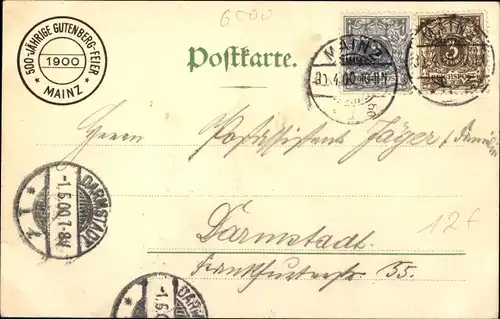 6000
500-JÄHRIGE GUTENBERG-FEIER
1900
* MAINZ *
Postkarte.
MAINZ
30.4.00.10-11N
MAINZ
3
REICHSPOST
Herrn Postassistent Jäger
DARMSTADT
-1.5.00.7-8V
* 1 *
12f
Darmstadt.
Frankfurterstr. 55.
DARMSTADT
-1.5.0